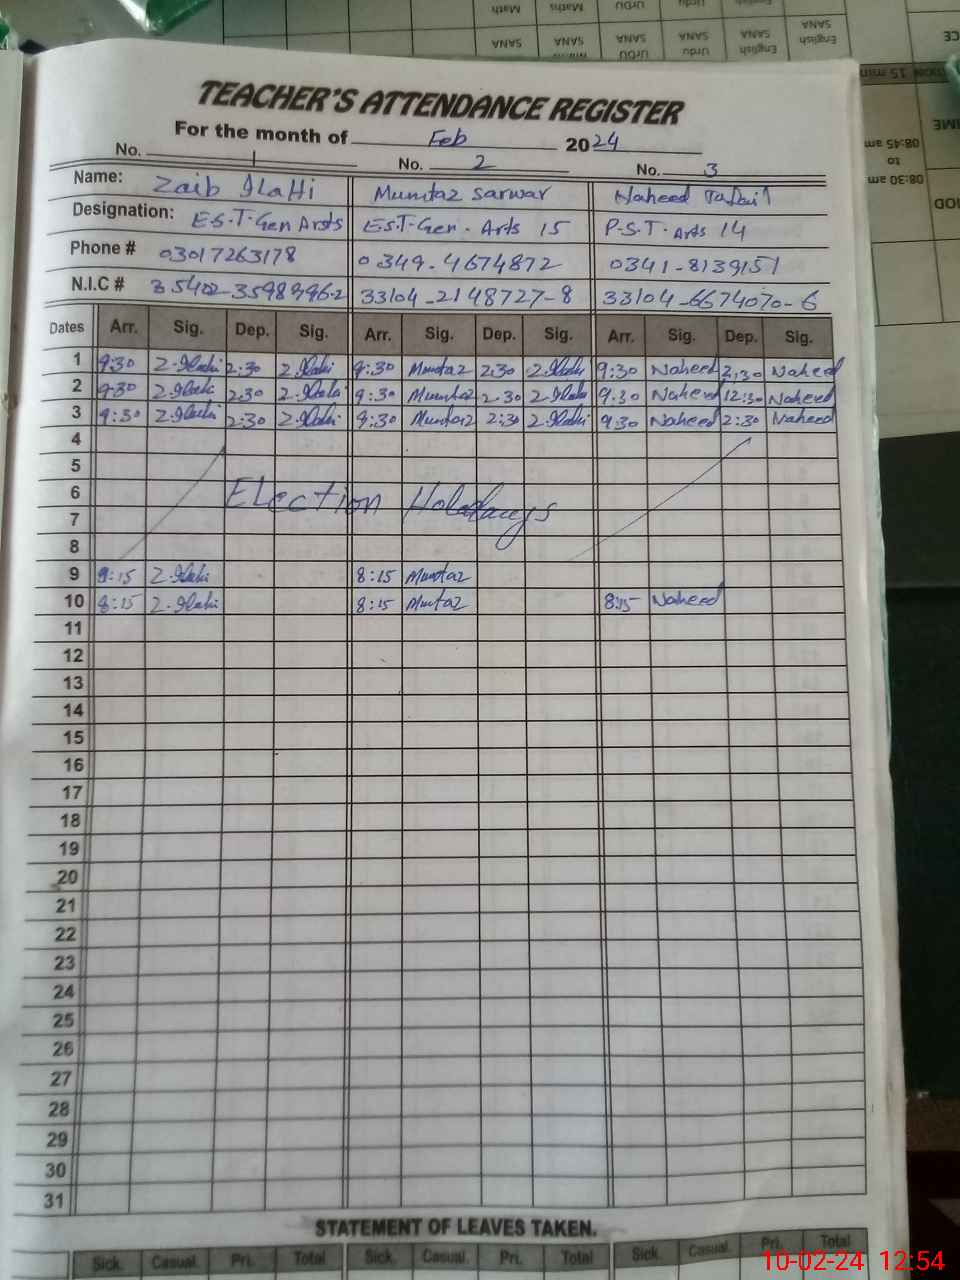 TEACHER'S ATTENDANCE REGISTER
For the month of Feb 2024
No. 1 No. 2 No. 3
Name: Zaib Ilahi Mumtaz Sarwar Naheed
Designation: E.S.T-Gen Arsts E.S.T-Gen. Arts 15 P.S.T. Arts 14
Phone # 03017263178 0349-4674872 0341-8139151
N.I.C # 35402-3598996-2 33104-2148727-8 33104-6674070-6
Dates Arr. Sig. Dep. Sig. Arr. Sig. Dep. Sig. Arr. Sig. Dep. Sig.
1 9:30 Z-Ilahi 2:30 Z-Ilahi 9:30 Mumtaz 2:30 Z-Ilahi 9:30 Naheed 2:30 Naheed
2 9:30 Z-Ilahi 2:30 Z-Ilahi 9:30 Mumtaz 2:30 Z-Ilahi 9:30 Naheed 12:30 Naheed
3 9:30 Z-Ilahi 2:30 Z-Ilahi 9:30 Mumtaz 2:30 Z-Ilahi 9:30 Naheed 2:30 Naheed
4
5
6 Election Holadays
7
8
9 8:15 Z-Ilahi 8:15 Mumtaz
10 8:15 Z-Ilahi 8:15 Mumtaz 8:15 Naheed
11
12
13
14
15
16
17
18
19
20
21
22
23
24
25
26
27
28
29
30
31
STATEMENT OF LEAVES TAKEN.
Sick. Casual. Pri. Total Sick. Casual. Pri. Total Sick. Casual. Pri. Total
10-02-24 12:54
English Urdu Urdu Maths Math
SANA SANA SANA SANA SANA SANA
English English Urdu Urdu
15 min
08:45 am
to
08:30 am